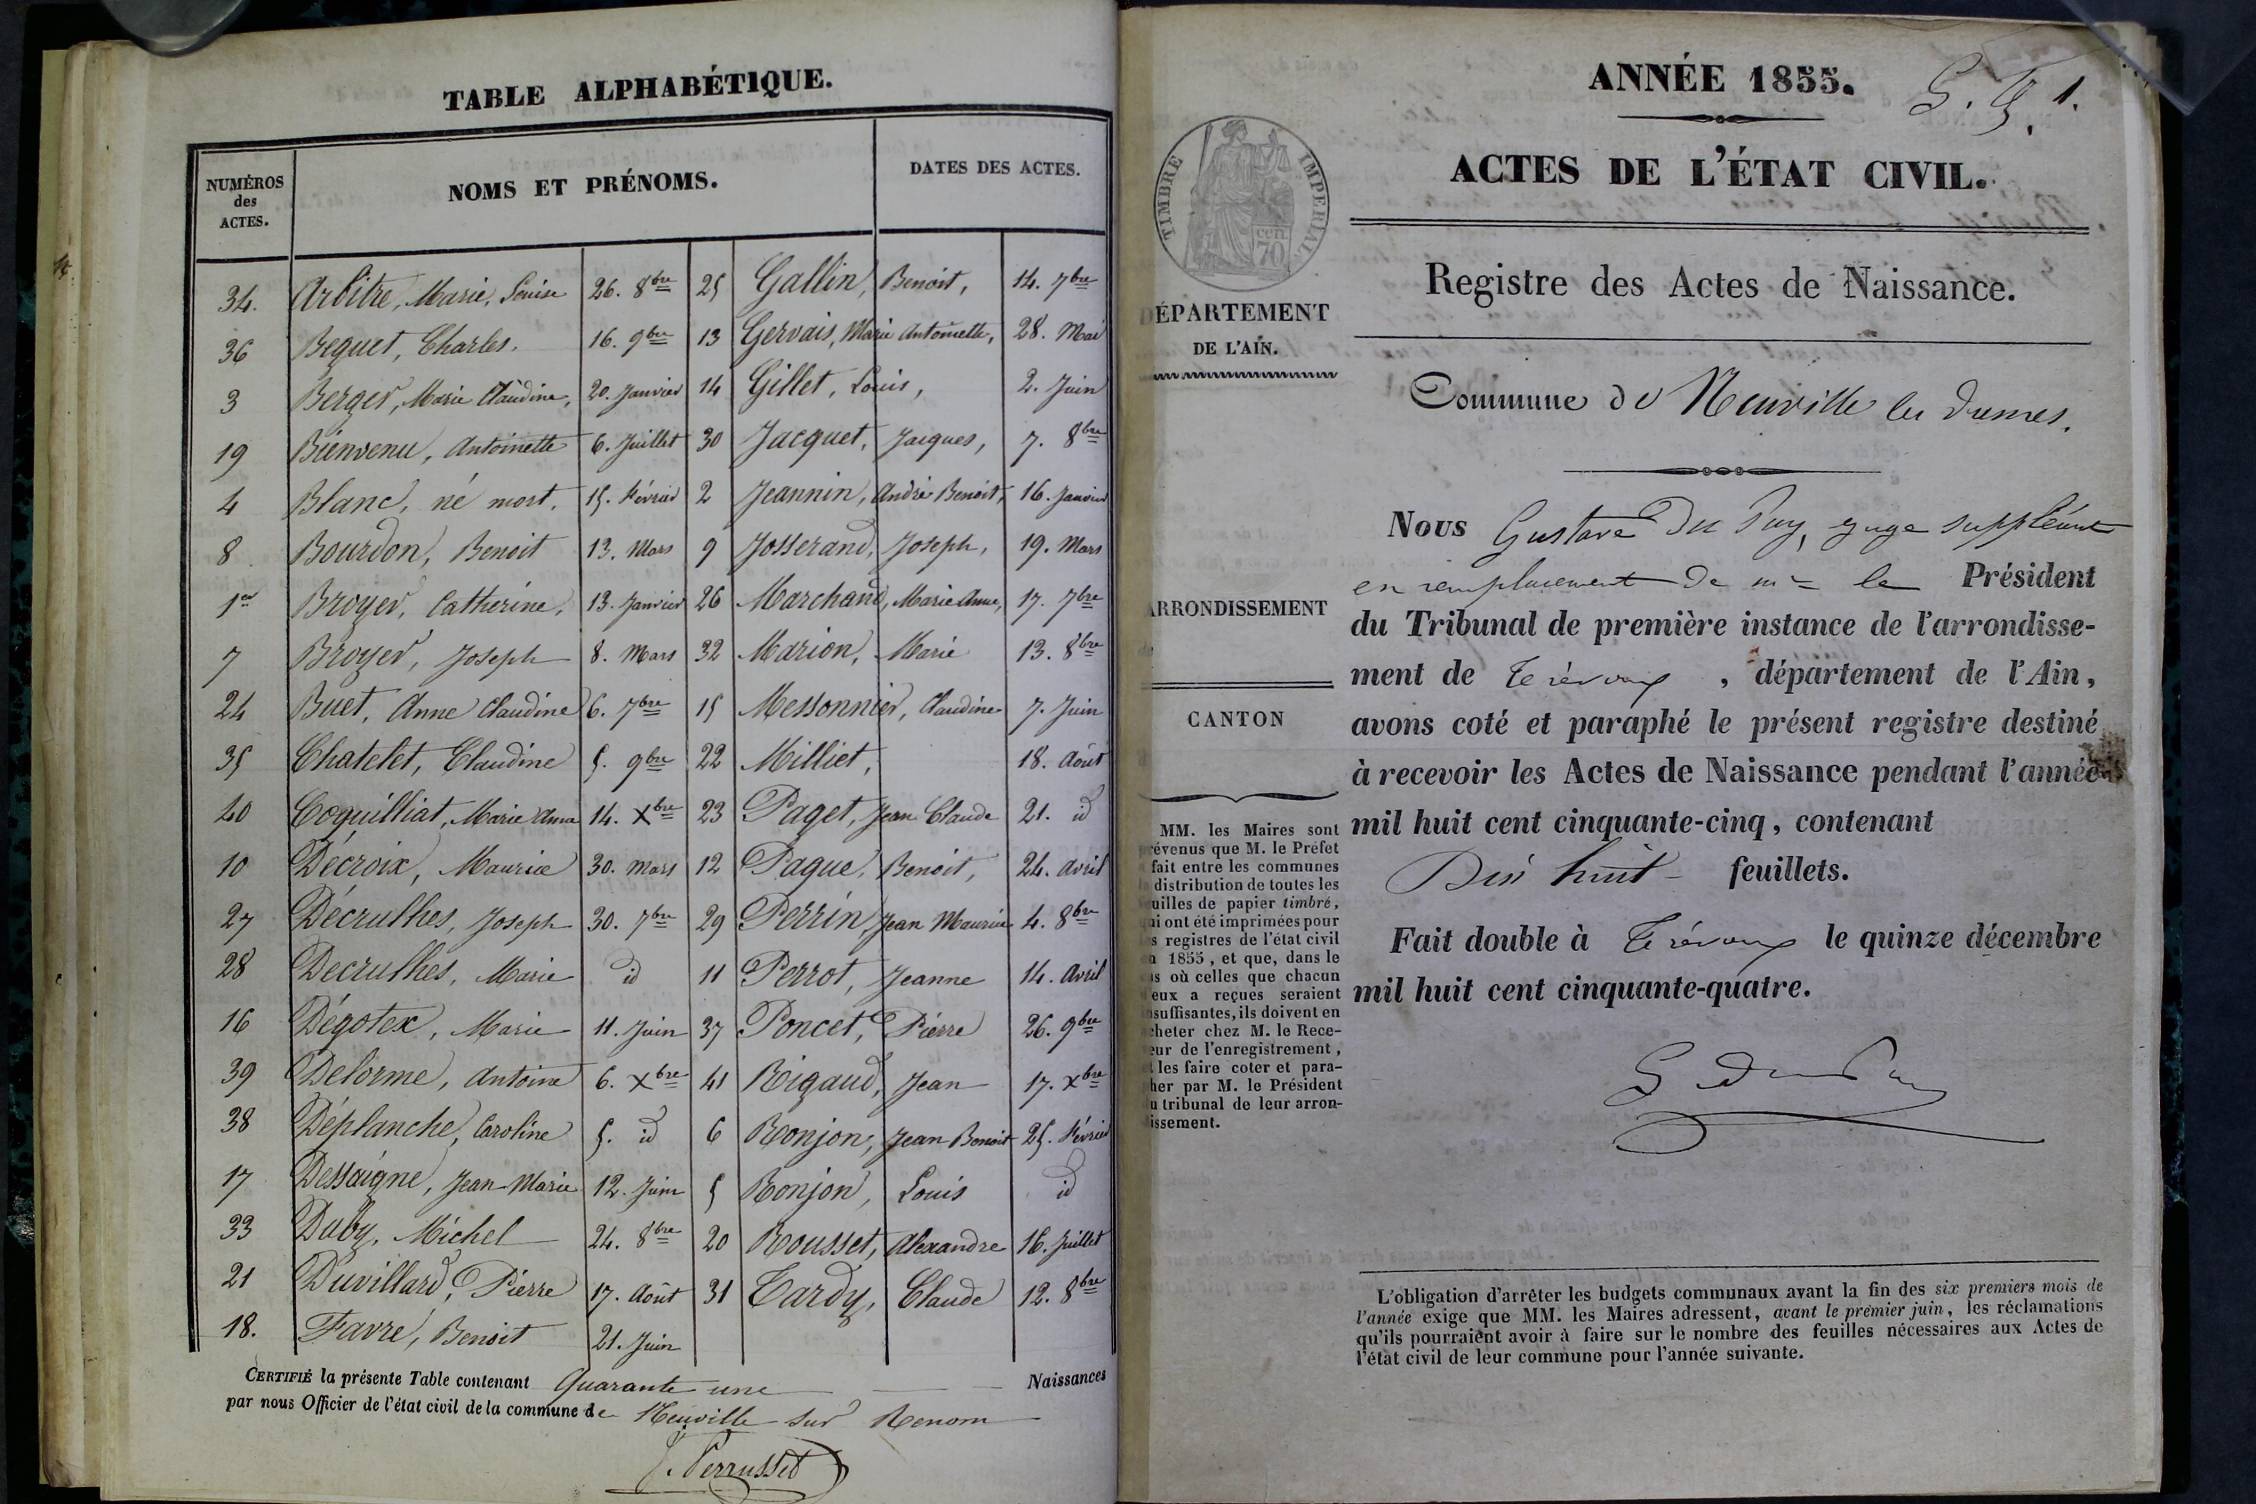 TABLE ALPHABÉTIQUE.
NUMÉROS des ACTES.
NOMS ET PRÉNOMS.
DATES DES ACTES.
34. Arbitre, Marie, Louise 26. 8bre
36 Beguet, Charles. 16. 9bre
3 Berger, Marie Claudine, 20. Janvier
19 Bienvenu, Antoinette 6. Juillet
4 Blanc, né mort. 15. Février
8 Bourdon, Benoit 13. Mars
1er Broyer, Catherine, 13. Janvier
7 Broyer, Joseph 8. Mars
24 Buet, Anne Claudine 6. 7bre
35 Chatelet, Claudine 5. 9bre
40 Coquilliat, Marie Anna 14. Xbre
10 Décroix, Maurice 30. Mars
27 Décrulhes, Joseph 30. 7bre
28 Decrulhes, Marie id
16 Dégotex, Marie 11. Juin
39 Delorme, Antoine 6. Xbre
38 Déplanche, Caroline 5. id
17 Dessaigne, Jean-Marie 12. Juin
33 Duby, Michel 24. 8bre
21 Duvillard, Pierre 17. Août
18. Favre, Benoit 21. Juin
25 Gallin, Benoit, 14. 7bre
13 Gervais, Marie Antoinette, 28. Mai
14 Gillet, Louis, 2. Juin
30 Jacquet, Jacques, 7. 8bre
2 Jeannin, André Benoit, 16. Janvier
9 Josserand, Joseph, 19. Mars
26 Marchand, Marie Anne, 17. 7bre
32 Marion, Marie 13. 8bre
15 Messonnier, Claudine 7. Juin
22 Milliet, 18. Août
23 Paget, Jean Claude 21. id
12 Pague, Benoit, 24. Avril
29 Perrin, Jean Maurice 4. 8bre
11 Perrot, Jeanne 14. Avril
37 Poncet, Pierre 26. 9bre
41 Rigaud, Jean 17. Xbre
6 Ronjon, Jean Benoit 25. Février
5 Ronjon, Louis id
20 Rousset, Alexandre 16. Juillet
31 Tardy, Claude 12. 8bre
CERTIFIÉ la présente Table contenant Quarante une Naissances
par nous Officier de l'état civil de la commune de Neuville sur Renom
J. Perrusset
ANNÉE 1855.
1.
ACTES DE L'ÉTAT CIVIL.
TIMBRE IMPERIAL
cen. 70
Registre des Actes de Naissance.
DÉPARTEMENT
DE L'AIN.
Commune de Neuville les Dames.
Nous Gustave Du Puy, Juge suppléant
en remplacement de mr le Président
du Tribunal de première instance de l'arrondisse-
ment de Trévoux, département de l'Ain,
avons coté et paraphé le présent registre destiné
à recevoir les Actes de Naissance pendant l'année
mil huit cent cinquante-cinq, contenant
Dix huit feuillets.
Fait double à Trévoux le quinze décembre
mil huit cent cinquante-quatre.
G du Puy
ARRONDISSEMENT
CANTON
MM. les Maires sont
prévenus que M. le Préfet
fait entre les communes
distribution de toutes les
euilles de papier timbré,
qui ont été imprimées pour
es registres de l'état civil
n 1855, et que, dans le
as où celles que chacun
eux a reçues seraient
nsuffisantes, ils doivent en
cheter chez M. le Rece-
eur de l'enregistrement,
t les faire coter et para-
her par M. le Président
u tribunal de leur arron-
issement.
L'obligation d'arrêter les budgets communaux avant la fin des six premiers mois de
l'année exige que MM. les Maires adressent, avant le premier juin, les réclamations
qu'ils pourraient avoir à faire sur le nombre des feuilles nécessaires aux Actes de
l'état civil de leur commune pour l'année suivante.